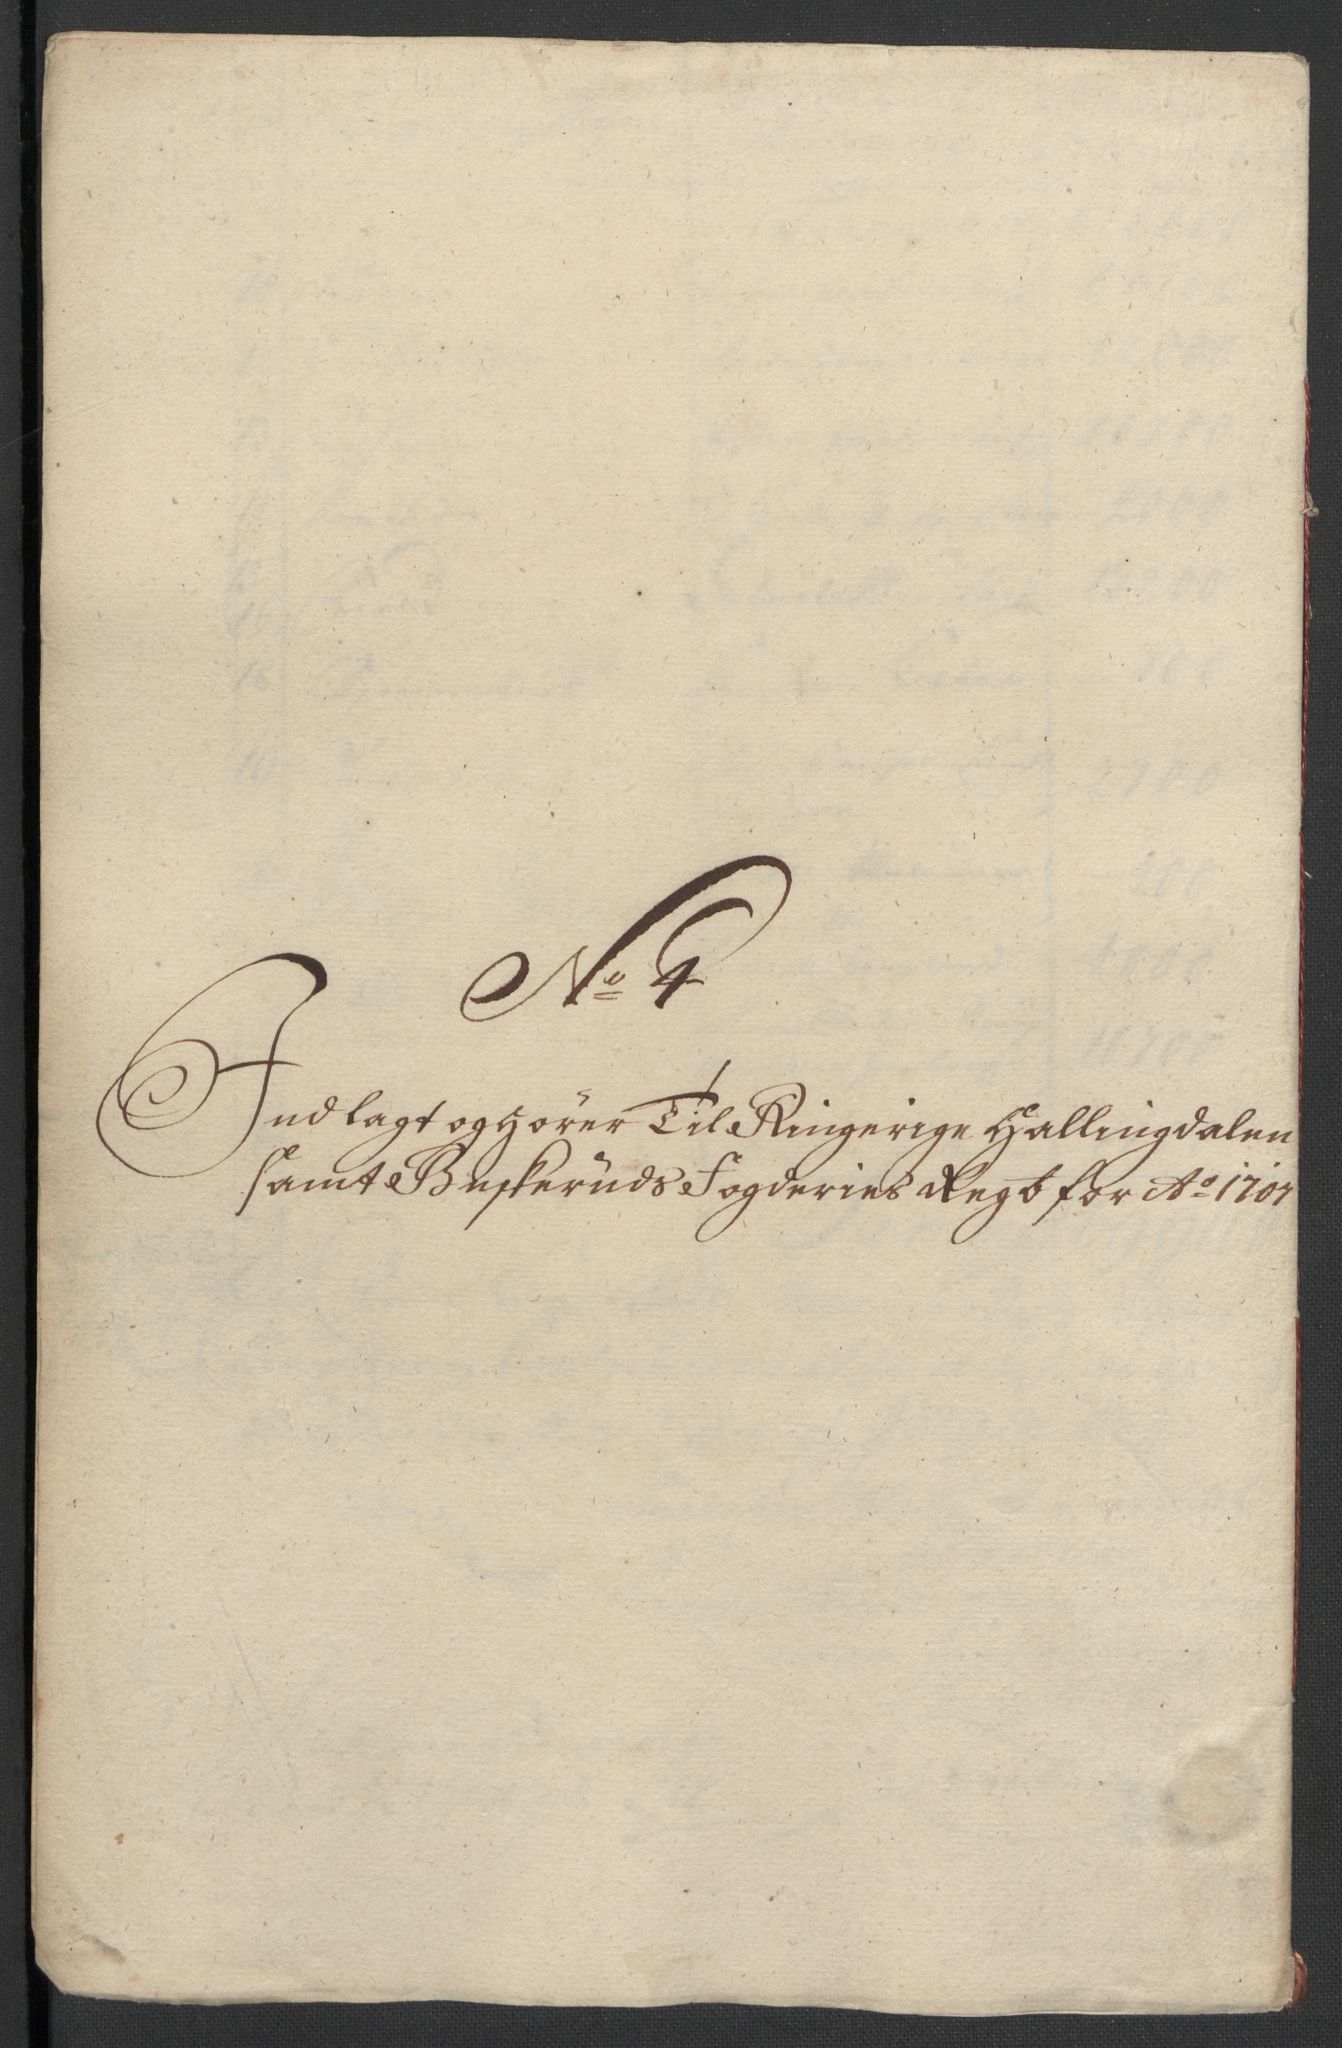 No 4
Indlagt og hörer Til Ringerige Hallingdalen
samt Buskeruds Fogderies Regb for Ao 1707